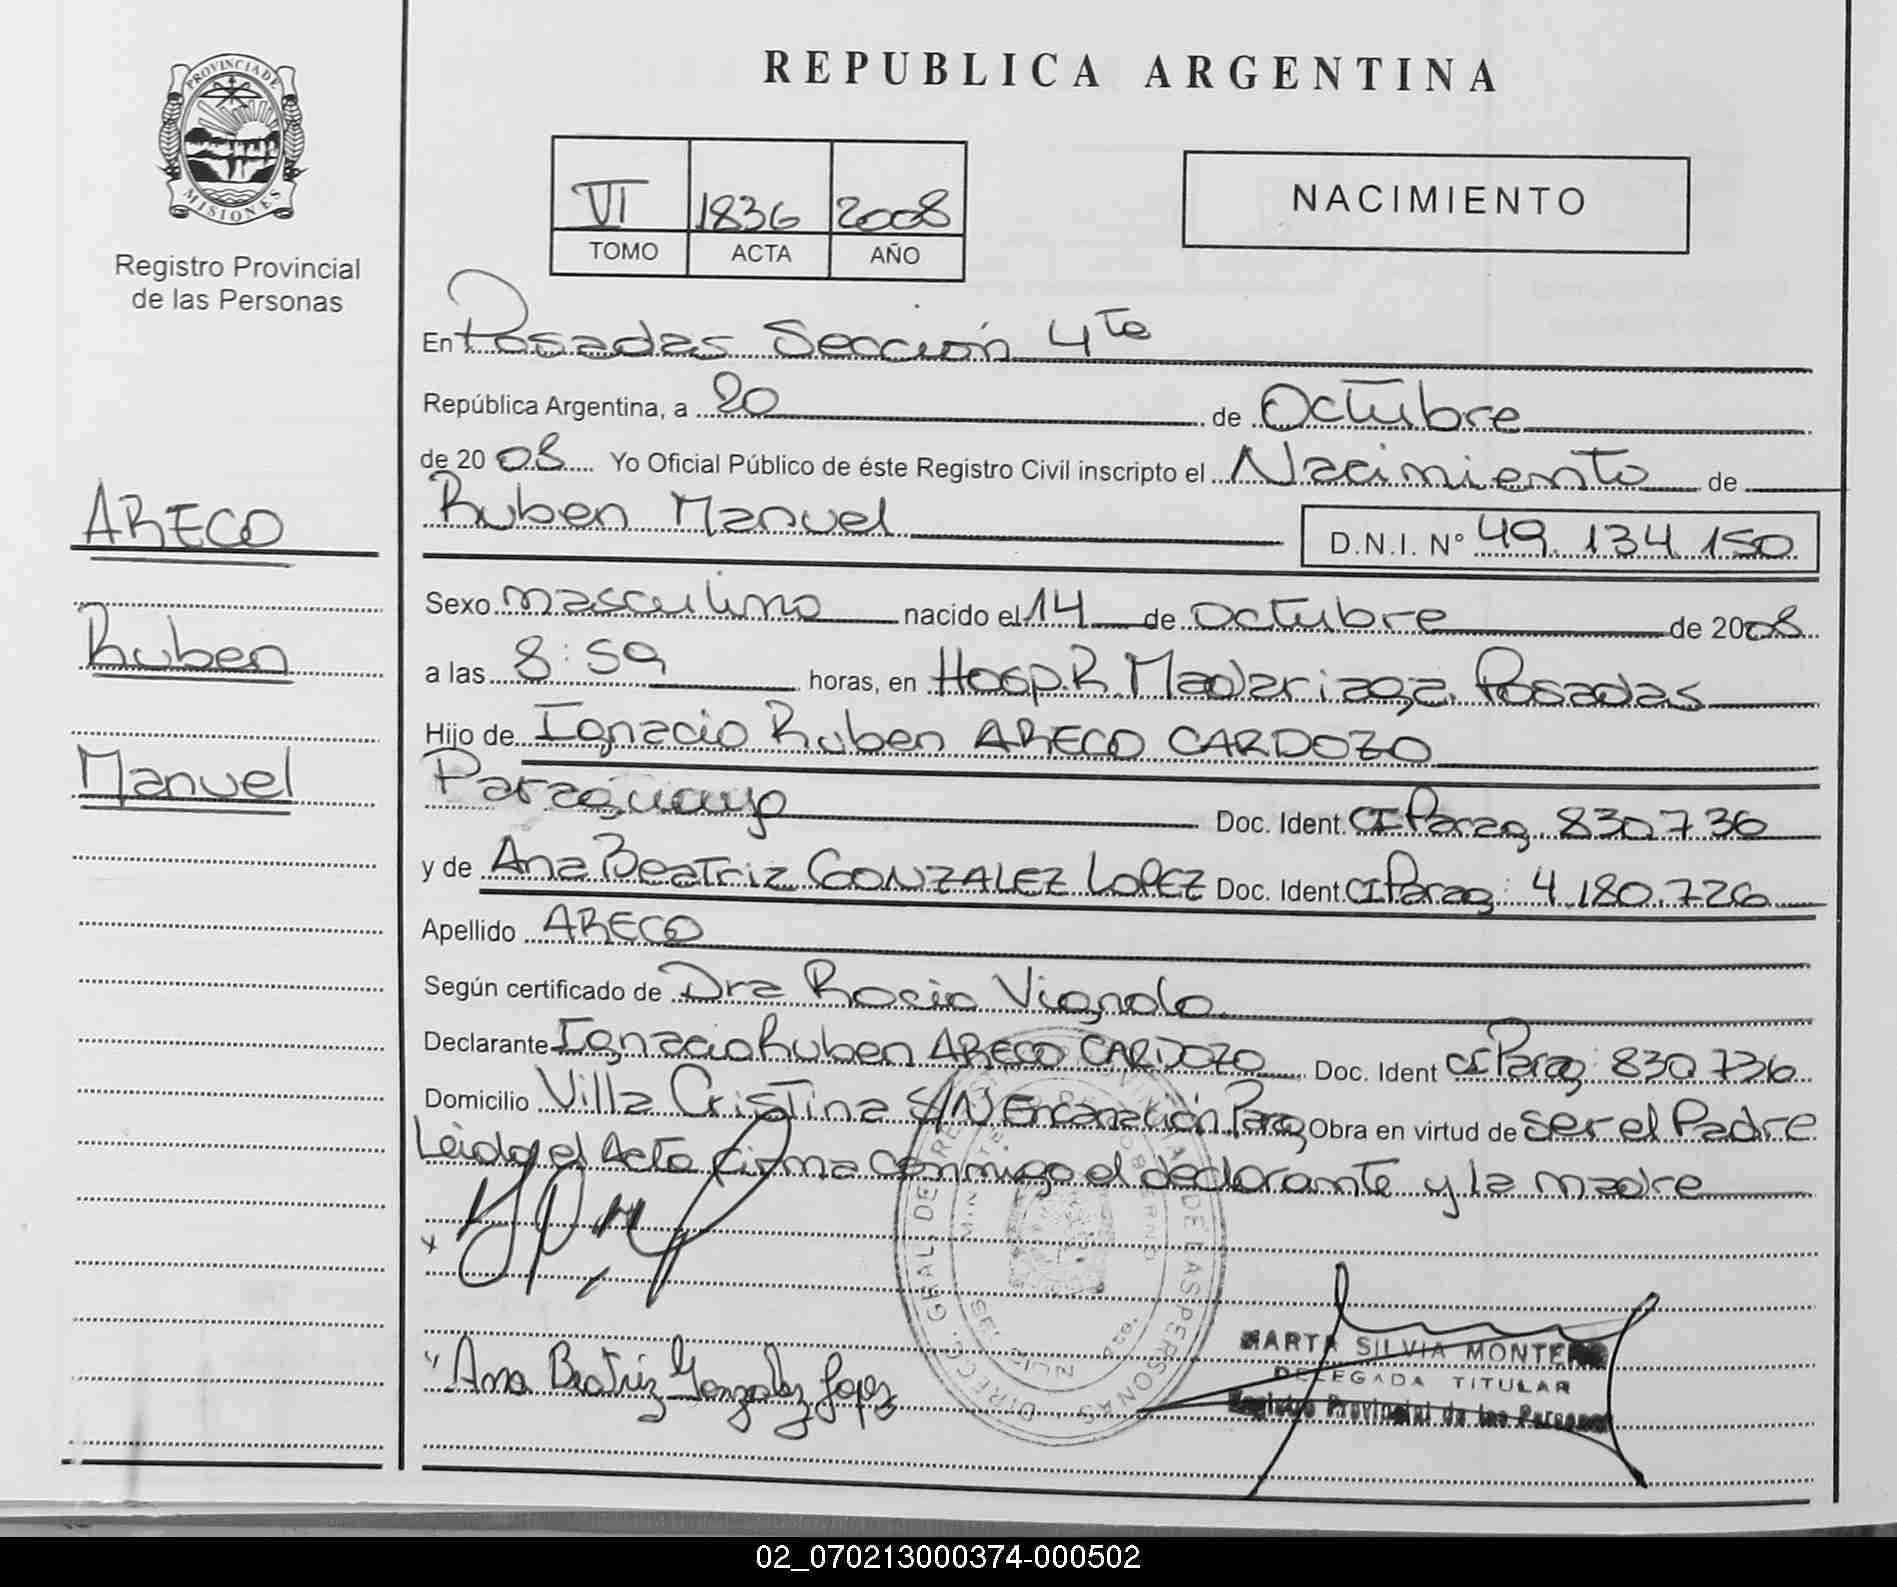 REPUBLICA ARGENTINA
PROVINCIA DE
MISIONES
Registro Provincial
de las Personas
VI 1836 2008
TOMO ACTA AÑO
NACIMIENTO
ARECO
Ruben
Manuel
En Posadas Sección 4ta
República Argentina, a 20 de Octubre
de 20 08 Yo Oficial Público de éste Registro Civil inscripto el Nacimiento de
Ruben Manuel D.N.I. N° 49.134.150
Sexo masculino nacido el 14 de Octubre de 2008
a las 8:59 horas, en Hosp. R. Madariaga. Posadas
Hijo de Ignacio Ruben ARECO CARDOZO
Paraguayo Doc. Ident. CI Parag 830.736
y de Ana Beatriz GONZALEZ LOPEZ Doc. Ident. CI Parag: 4.180.726
Apellido ARECO
Según certificado de Dra Rocio Vignolo
Declarante Ignacio Ruben ARECO CARDOZO Doc. Ident CI Parag: 830.736
Domicilio Villa Cristina S/N Encarnación Parag Obra en virtud de ser el Padre
Leida el Acta firma conmigo el declarante y la madre
x
DIRECC. GRAL. DE DE LAS PERSONAS
" Ana Beatriz Gonzalez Lopez
MARTA SILVIA MONTERO
DELEGADA TITULAR
Registro Provincial de las Personas
02_070213000374-000502